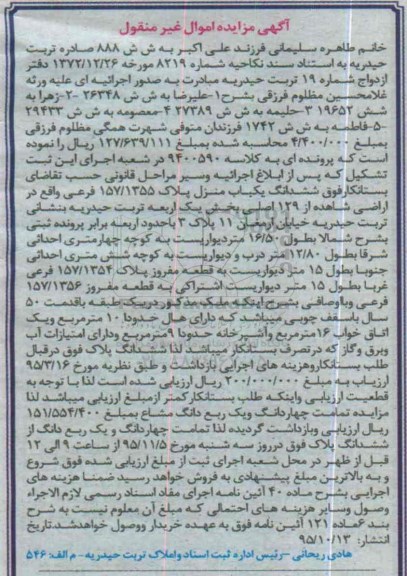 آگهی مزایده اموال غیر منقول
خانم طاهره سلیمانی فرزند علی اکبر به ش ش ۸۸۸ صادره تربت
حیدریه به استناد سند نکاحیه شماره ۸۲۱۹ مورخه ۱۳۷۲/۱۲/۲۶ دفتر
ازدواج شماره ۱۹ تربت حیدریه مبادرت به صدور اجرائیه ای علیه ورثه
غلامحسین مظلوم فرزقی بشرح۱-علیرضا به ش ش ۲۶۳۴۸ -۲-زهرا به
شش ۱۹۶۵۲ ۳-حلیمه به ش ش ۲۷۳۸۹ ۴-معصومه به ش ش ۲۹۴۳۳
۵-فاطمه به ش ش ۱۷۴۲ فرزندان متوفی شهرت همگی مظلوم فرزقی
بمبلغ ۴/۴۰۰/۰۰۰ محاسبه شده بمبلغ ۱۲۷/۶۳۹/۱۱۱ ریال را نموده
است که پرونده ای به کلاسه ۹۴۰۰۵۹۰ در شعبه اجرای این ثبت
تشکیل که پس از ابلاغ اجرائیه وسیر مراحل قانونی حسب تقاضای
بستانکارفوق ششدانگ یکباب منزل پلاک ۱۵۷/۱۳۵۵ فرعی واقع در
اراضی شاهده از ۱۲۹ اصلی بخش یک اربعه تربت حیدریه بنشانی
تربت حیدریه خیابان ۱۱ پلاک ۳ باحدود اربعه برابر پرونده ثبتی
بشرح شمالا بطول ۱۶/۵۰ متردیواریست به کوچه چهارمتری احداثی
شرقا بطول ۱۲/۸۰ متر درب و دیواریست به کوچه شش متری احداثی
جنوبا بطول ۱۵ متر دیواریست به قطعه مفروز پلاک ۱۵۷/۱۳۵۴ فرعی
غربا بطول ۱۵ متر دیواریست اشتراکی به قطعه مفروز ۱۵۷/۱۳۵۶
فرعی وبااوصافی بشرح اینکه ملک مذکور دریک طبقه باقدمت ۵۰
سال باسقف چوبی میباشد که دارای هال حدودا ۱۰ مترمربع ویک
اتاق خواب ۱۶مترمربع وآشپزخانه حدودا ۹مترمربع ودارای امتیازات آب
وبرق وگاز که درتصرف بستانکار میباشد لذا ششدانگ پلاک فوق درقبال
طلب بستانکاروهزینه های اجرایی بازداشت و طبق نظریه مورخ ۹۵/۳/۱۶
ارزیاب به مبلغ ۲۰۰/۰۰۰/۰۰۰ ریال ارزیابی شده است لذا با توجه به
قطعیت ارزیابی واینکه طلب بستانکارکمتر ازمبلغ ارزیابی میباشد لذا
مزایده تمامت چهاردانگ ویک ربع دانگ مشاع بمبلغ ۱۵۱/۵۵۴/۴۰۰
ریال ارزیابی وبازداشت گردیده لذا تمامت چهاردانگ و یک ربع دانگ از
ششدانگ پلاک فوق درروز سه شنبه مورخ ۹۵/۱۱/۵ از ساعت ۹ الی ۱۲
قبل از ظهر در محل شعبه اجرای ثبت از مبلغ ارزیابی شده فوق شروع
و به بالاترین مبلغ پیشنهادی به فروش خواهد رسید ضمنا هزینه های
اجرایی بشرح ماده ۴۰ آئین نامه اجرای مفاد اسناد رسمی لازم الاجراء
وصول وسایر هزینه های احتمالی که مبلغ آن معلوم نیست به شرح
بند ۶ماده ۱۲۱ آئین نامه فوق به عهده خریدار ووصول خواهدشد.تاریخ
انتشار: ۹۵/۱۰/۱۳
هادی ریحانی -رئیس اداره ثبت اسناد واملاک تربت حیدریه- م الف: ۵۴۶